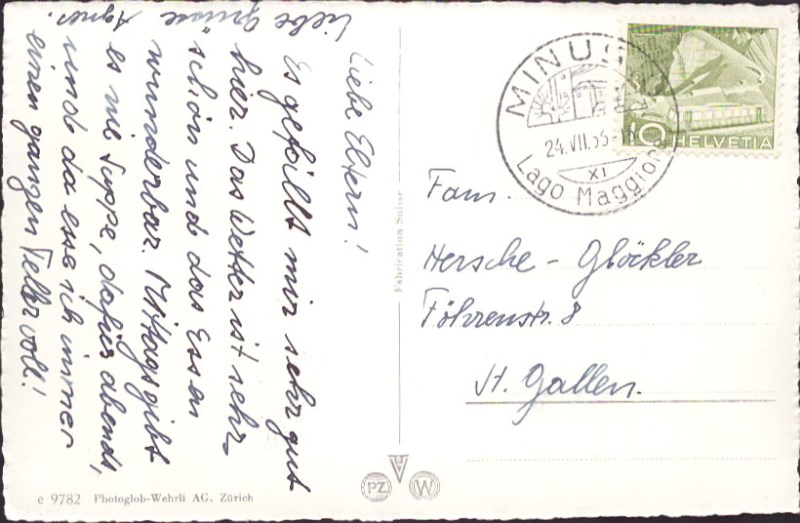 Liebe Eltern!
Es gefällt mir sehr gut
hier. Das Wetter ist sehr
schön und das Essen
wunderbar. Mittags gibt
es nie Suppe, dafür abends,
und da esse ich immer
einen ganzen Teller voll!
Liebe Grüsse
Agnes.
Fabrication Suisse
MINUSIO
24.VII.53
XI
Lago Maggiore
10 HELVETIA
Fam.
Hersche - Glöckler
Föhrenstr. 8
St. Gallen.
c 9782 Photoglob-Wehrli AG. Zürich
PZ W